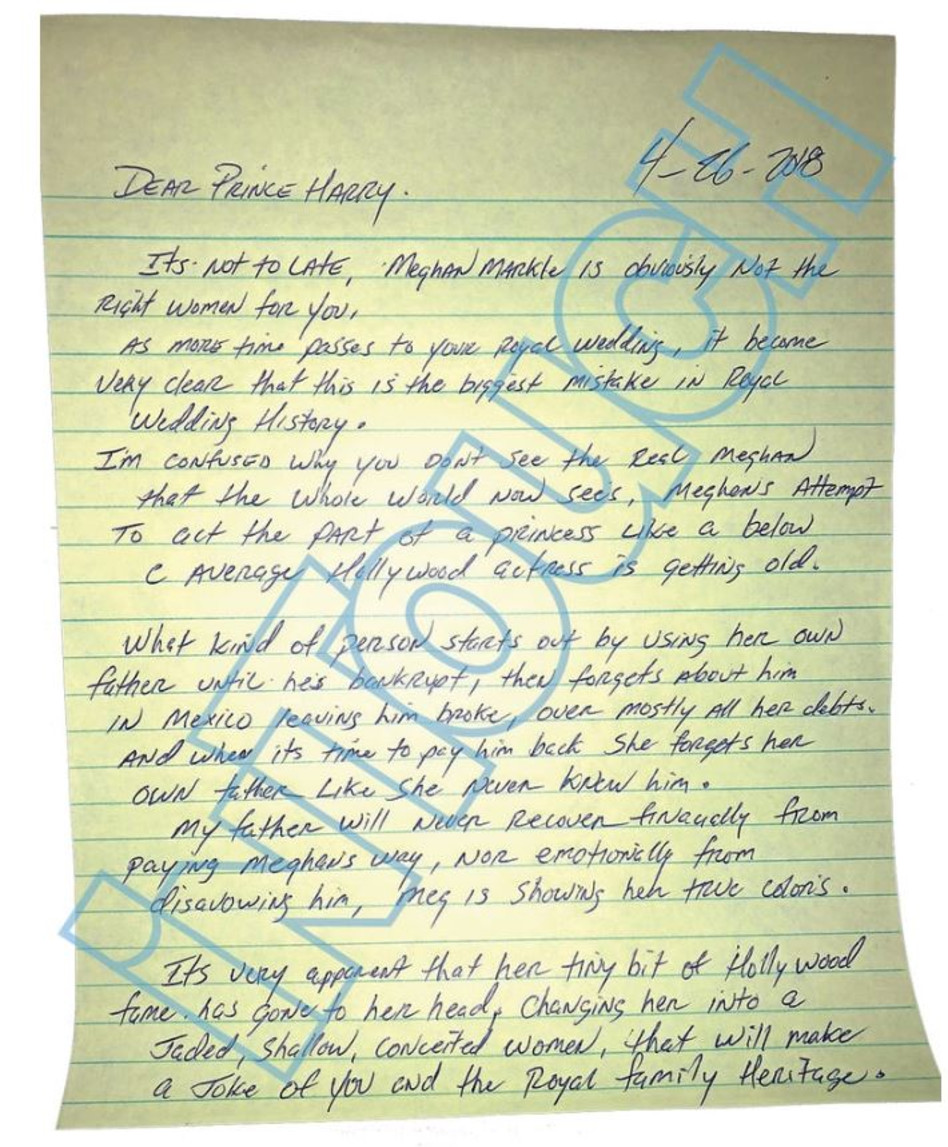 4-26-2018
DEAR PRINCE HARRY.
Its not to LATE, MeghAN MARkle is obviously Not the
Right Women for you,
As more time passes to your Royal Wedding, it became
Very clear that this is the biggest mistake in Royal
Wedding History.
I'm confused why you DON't see the Real Meghan
that the whole World Now sees, Meghan's Attempt
To act the PART of a princess Like a below
C AVERAge Hollywood actress is getting old.
What kind of person starts out by using her own
father until he's bankrupt, then forgets About him
in Mexico leaving him broke, over mostly All her debts.
And when its time to pay him back She forgets her
own father Like She Never knew him.
My father will Never Recover finacially from
paying Meghan's way, Nor emotionally from
disavowing him, Meg is Showing her true colors.
Its very apparent that her tiny bit of Hollywood
fame has gone to her head, Changing her into a
Jaded, Shallow, conceited women, that will make
a Joke of you and the Royal family Heritage.
INTOUCH